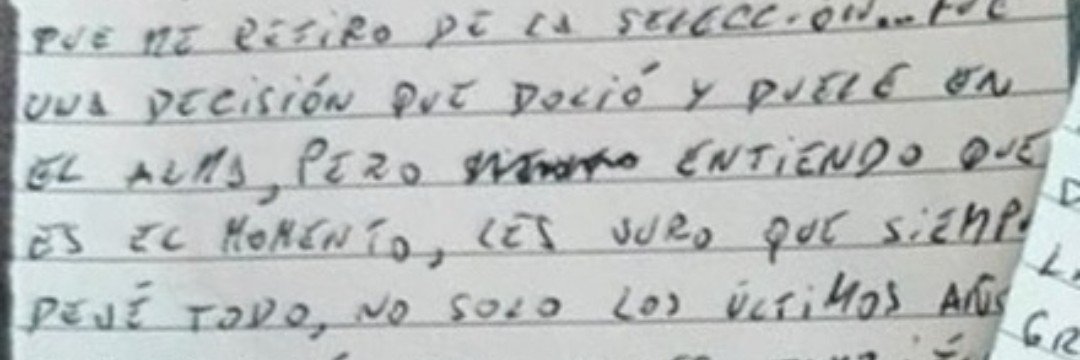 QUE ME RETIRO DE LA SELECCION... FUE
UNA DECISIÓN QUE DOLIÓ Y DUELE EN
EL ALMA, PERO ENTIENDO QUE
ES EL MOMENTO, LES JURO QUE SIEMP
DEJÉ TODO, NO SOLO LOS ÚLTIMOS AÑOS
GR